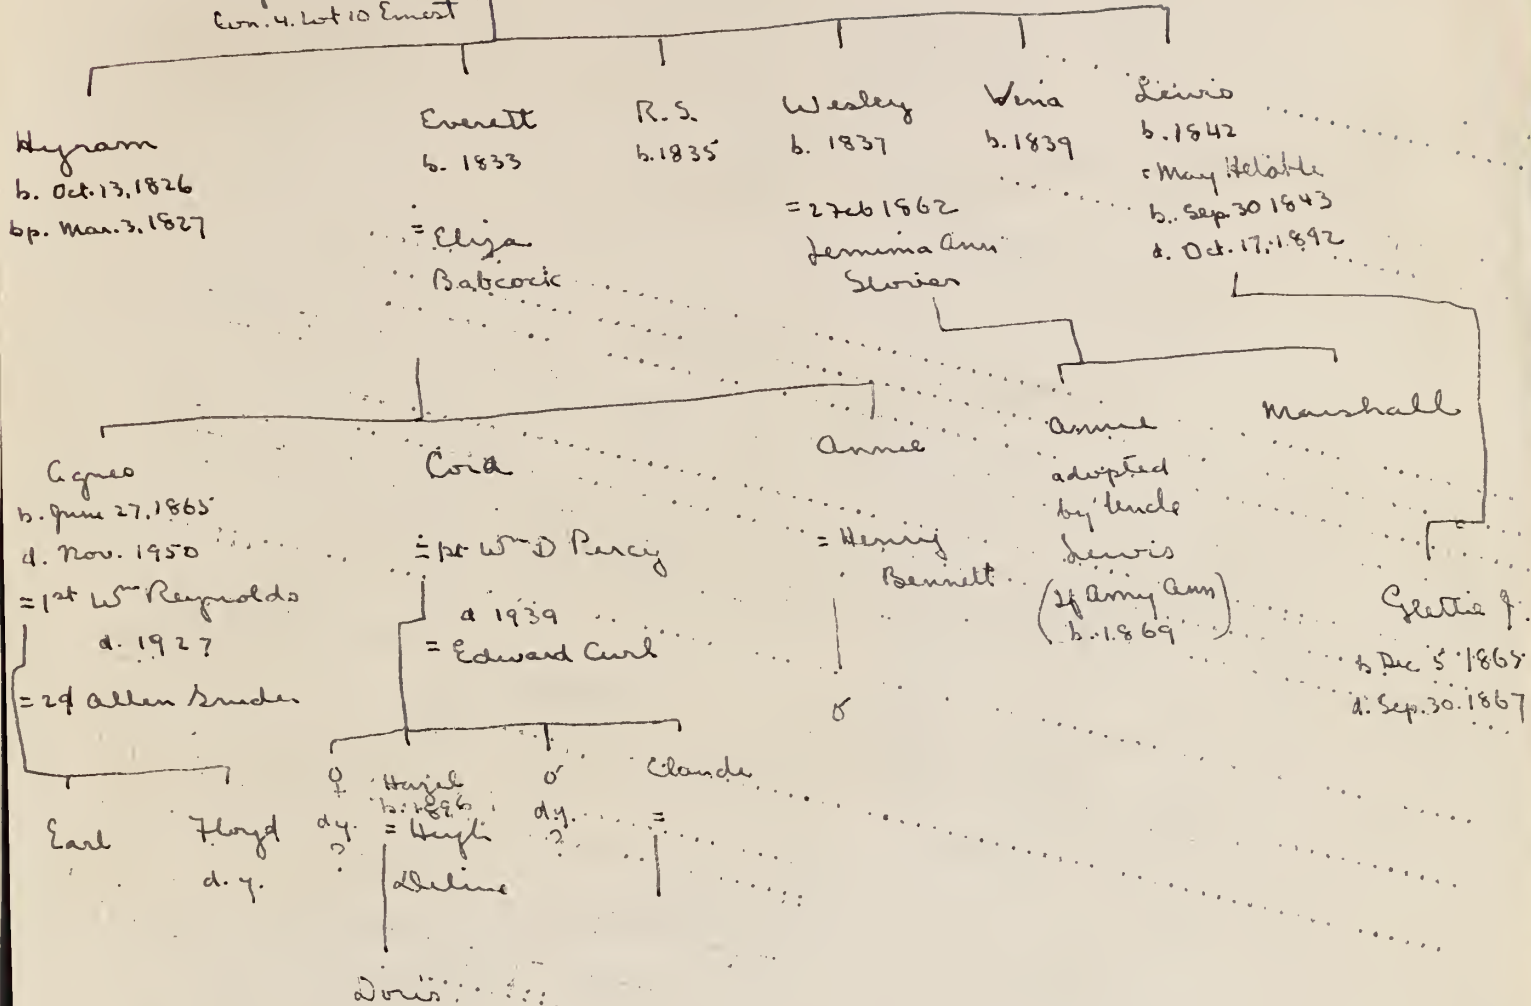 Con. 4. Lot 10 Ernest
Hyram
b. Oct. 13, 1826
bp. Mar. 3, 1827
Everett
b. 1833
= Eliza
Babcock
R. S.
b. 1835
Wesley
b. 1837
= 2 Feb 1862
Jemima Ann
Vina
b. 1839
Lewis
b. 1842
= May
b. Sep. 30 1843
d. Oct. 17, 1892
Agnes
b. June 27, 1865
d. Nov. 1950
= 1st Wm Reynolds
d. 1927
= 2d Allen
Cora
= 1st Wm D Percy
d 1939
= Edward Curl
Annie
= Henry
Bennett
♂
Annie
adopted
by Uncle
Lewis
(If Amy Ann)
b. 1869
Marshall
J.
b Dec 5 1865
d. Sep. 30. 1867
Earl
Floyd
d. y.
♀
d.y.
?
Hazel
b. 1896
= Hugh
Deline
♂
d.y.
?
Claude
=
Doris